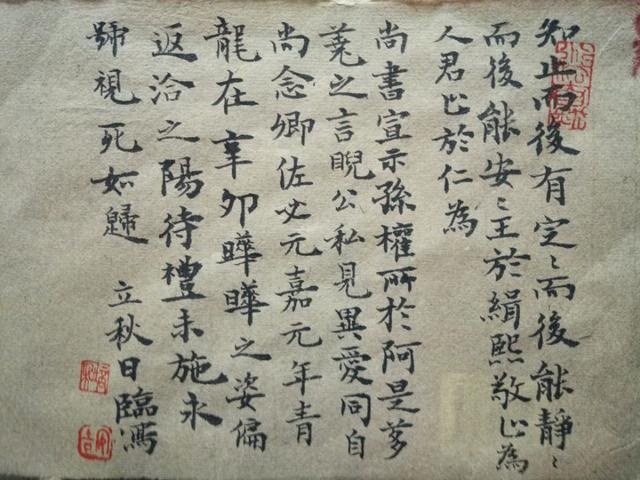 知止而後有定〻而後能靜〻
而後能安〻王於緝熙敬止為
人君止於仁為
尚書宣示孫權所於阿是多
荛之言睨公私見異愛同自
尚念卿佐必元嘉元年青
龍在辛卯曄曄之姿偏
返洽之陽待禮未施永
號視死如歸 立秋日臨馮